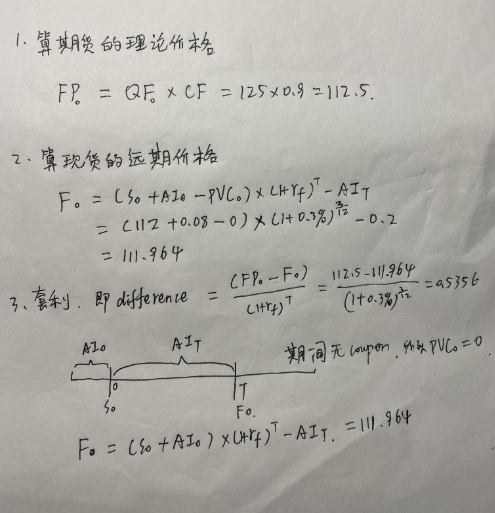 1. 算期货的理论价格
FP₀ = QF₀ × CF = 125×0.9 = 112.5.
2. 算现货的远期价格
F₀ = (S₀ + AI₀ - PVC₀) × (1+rf)^T - AI_T
= (112 + 0.08 - 0) × (1+0.3%)^{3/12} - 0.2
= 111.964
3、套利. 即 difference = (FP₀ - F₀) / (1+rf)^T = 112.5-111.964 / (1+0.3%)^{3/12} = 0.5356
AI₀ AI_T 期间无 coupon. 所以 PVC₀ = 0
0 T
S₀ F₀.
F₀ = (S₀ + AI₀) × (1+rf)^T - AI_T. = 111.964